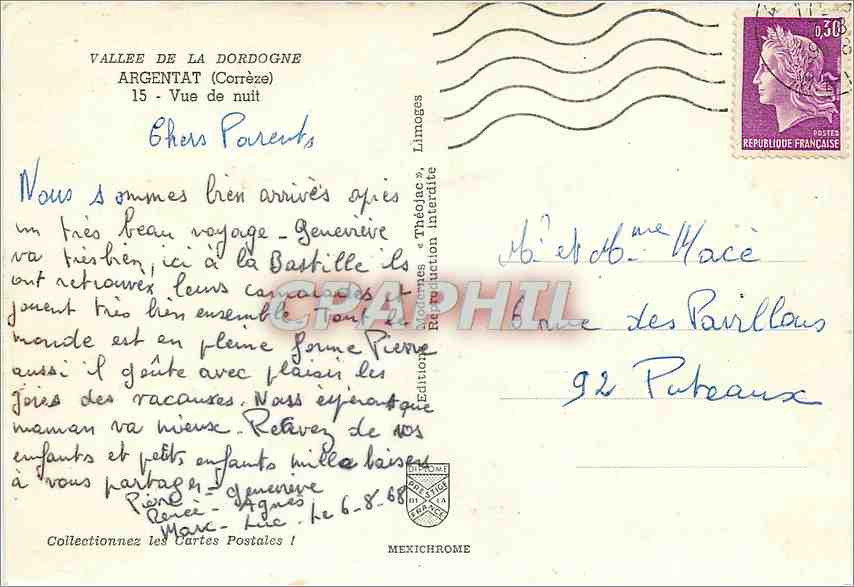 VALLEE DE LA DORDOGNE
ARGENTAT (Corrèze)
15 - Vue de nuit
Chers Parents
Nous sommes bien arrivés après
un très beau voyage - Geneviève
va très bien, ici à la Bastille ils
ont retrouvés leurs camarades et
jouent très bien ensemble Tout le
monde est en pleine forme Pierre
aussi il goûte avec plaisir les
joies des vacances. Nous espérons que
maman va mieux. Recevez de vos
enfants et petits enfants mille baisers
à vous partager -
Pierre - Geneviève
Renée - Agnès
Marc - Luc - le 6-8-68
Collectionnez les Cartes Postales !
Editions Modernes « Théojac », Limoges
Reproduction interdite
CPAPHIL
DIPLOME
PRESTIGE
DE LA
FRANCE
MEXICHROME
0,30
POSTES
REPUBLIQUE FRANÇAISE
Mr et Mme Macé
6 rue des Pavillons
92 Puteaux